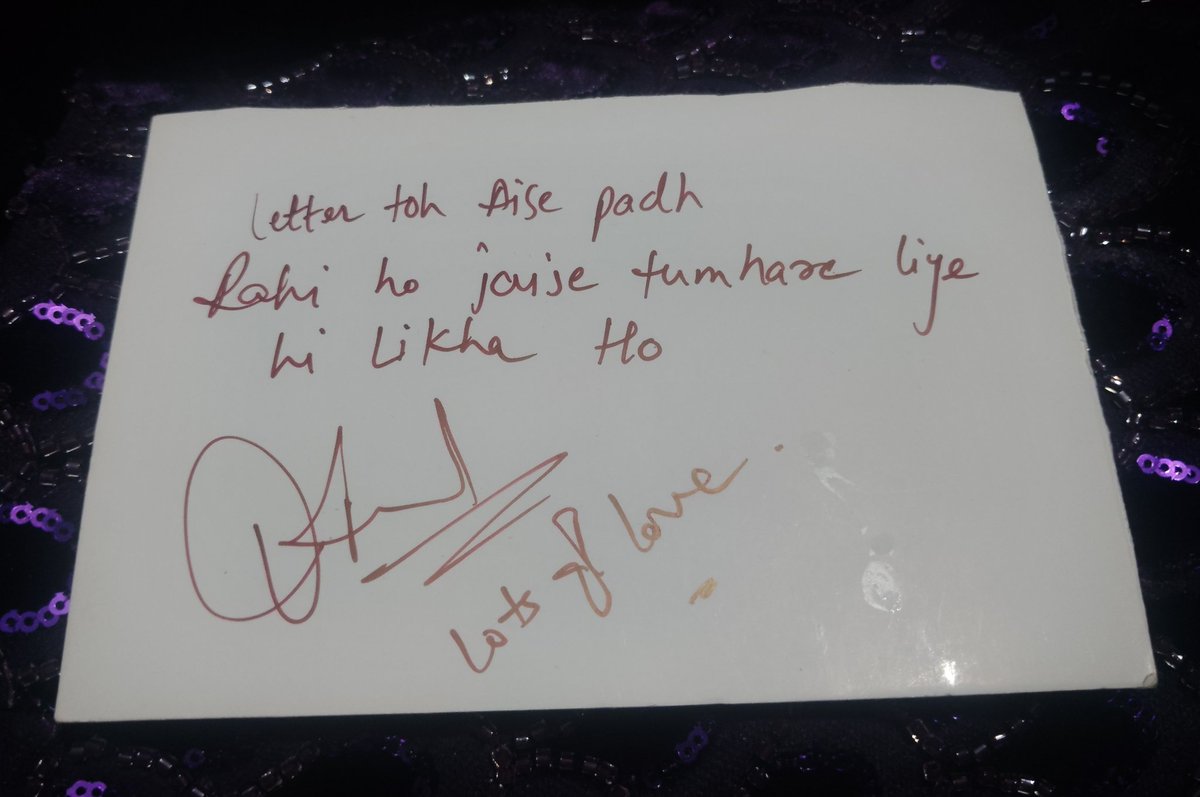 Letter toh Aise padh
Rahi ho jaise tumhare liye
hi Likha Ho
Lots of love.